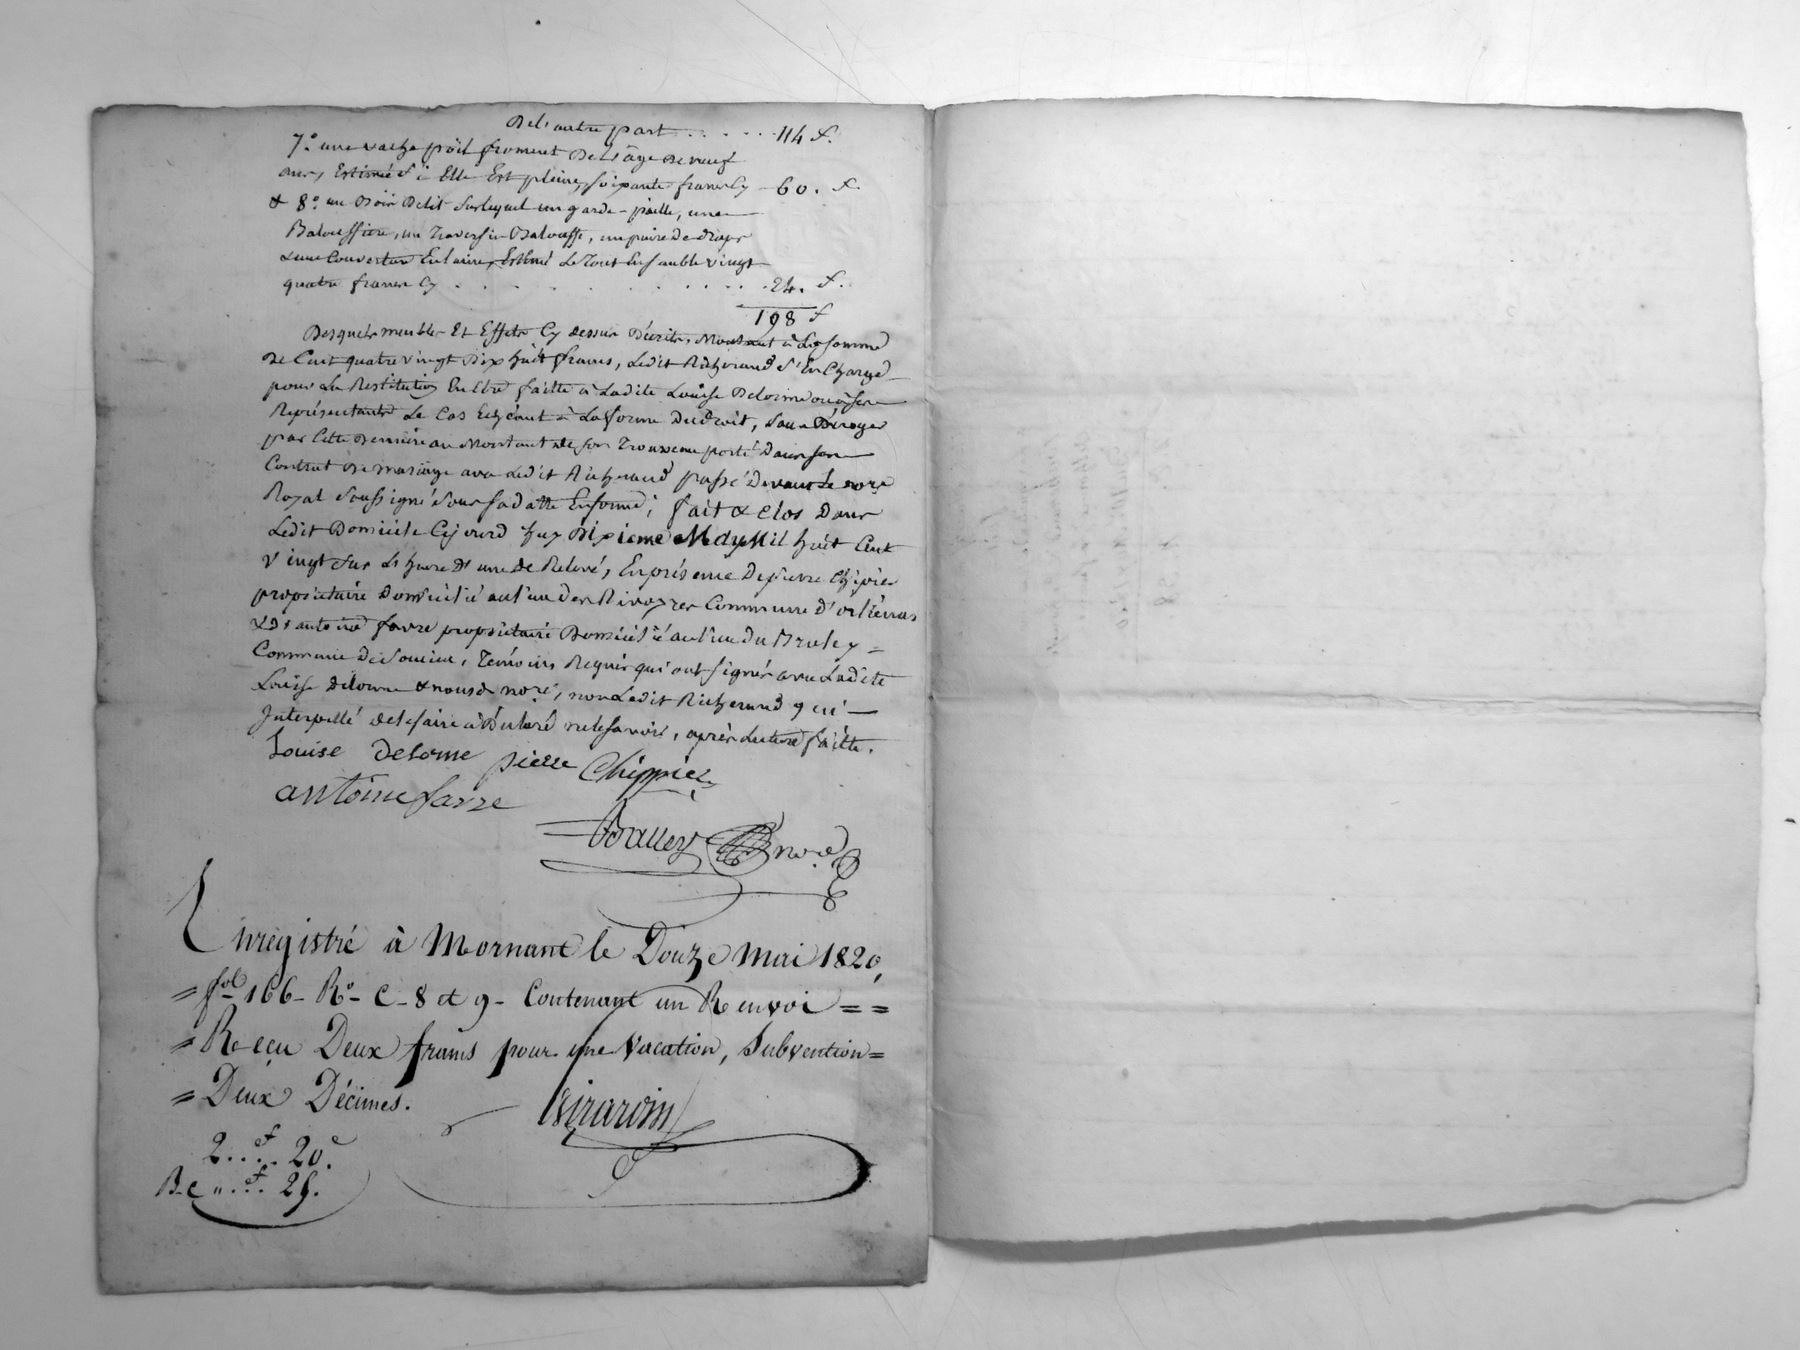 De l'autre part . . . . . 114 f.
7.° une vache poil froment de l'âge de neuf
ans, Estimée Elle Est pleine, soixante francs Cy 60. f.
& 8.° un Bois De lit sur lequel un garde-paille, une
Baloussiere, un Traversin Balouffe, un paire De draps
& une Couverture En laine, Estimé Le Tout Ensemble vingt
quatre francs Cy . . . . . . . . . . 24. f.
198 f
Desquels meubles Et Effets Cy dessus Décrits, Montant à La somme
De Cent quatre vingt Dix huit francs, Ledit Richerand s'En Charge
pour La Restitution En Etre faitte à Ladite Louise Delorme ou à ses
Représentants Le Cas Echéant à La forme Du Droit, Sans Déroger
par Cette Derniére au Montant de son Trousseau porté Dans son
Contrat De mariage avec Ledit Richerand passé Devant Le nore
Royal Soussigné Sous sa datte En forme; fait & clos Dans
Ledit Domicile Cejourd'huy Dixieme May Mil huit Cent
Vingt sur L'heure d'une de Relevé, En présence De pierre Chipier
propriétaire Domicilié au lieu des Rivoires Commune d'orliénas
& D'antoine favre propriétaire Domicilié au lieu du Bruley =
Commune de Soucieu, Témoins Requis qui ont signés avec Ladite
Louise Delorme & nousd. nore, non Ledit Richerand qui
Interpellé de le faire a Déclaré ne le savoir, après Lecture faitte.
Louise delorme pierre Chippier
antoine favre
Balley nore
Enregistré à Mornant le Douze Mai 1820,
= fol 166 - R° - C - 8 et 9 - Contenant un Renvoi = =
= Reçu Deux francs pour une Vacation, Subvention =
= Deux Décimes.
Girardin
2 . . f . . 20 c.
B. c " . . f . . 25.